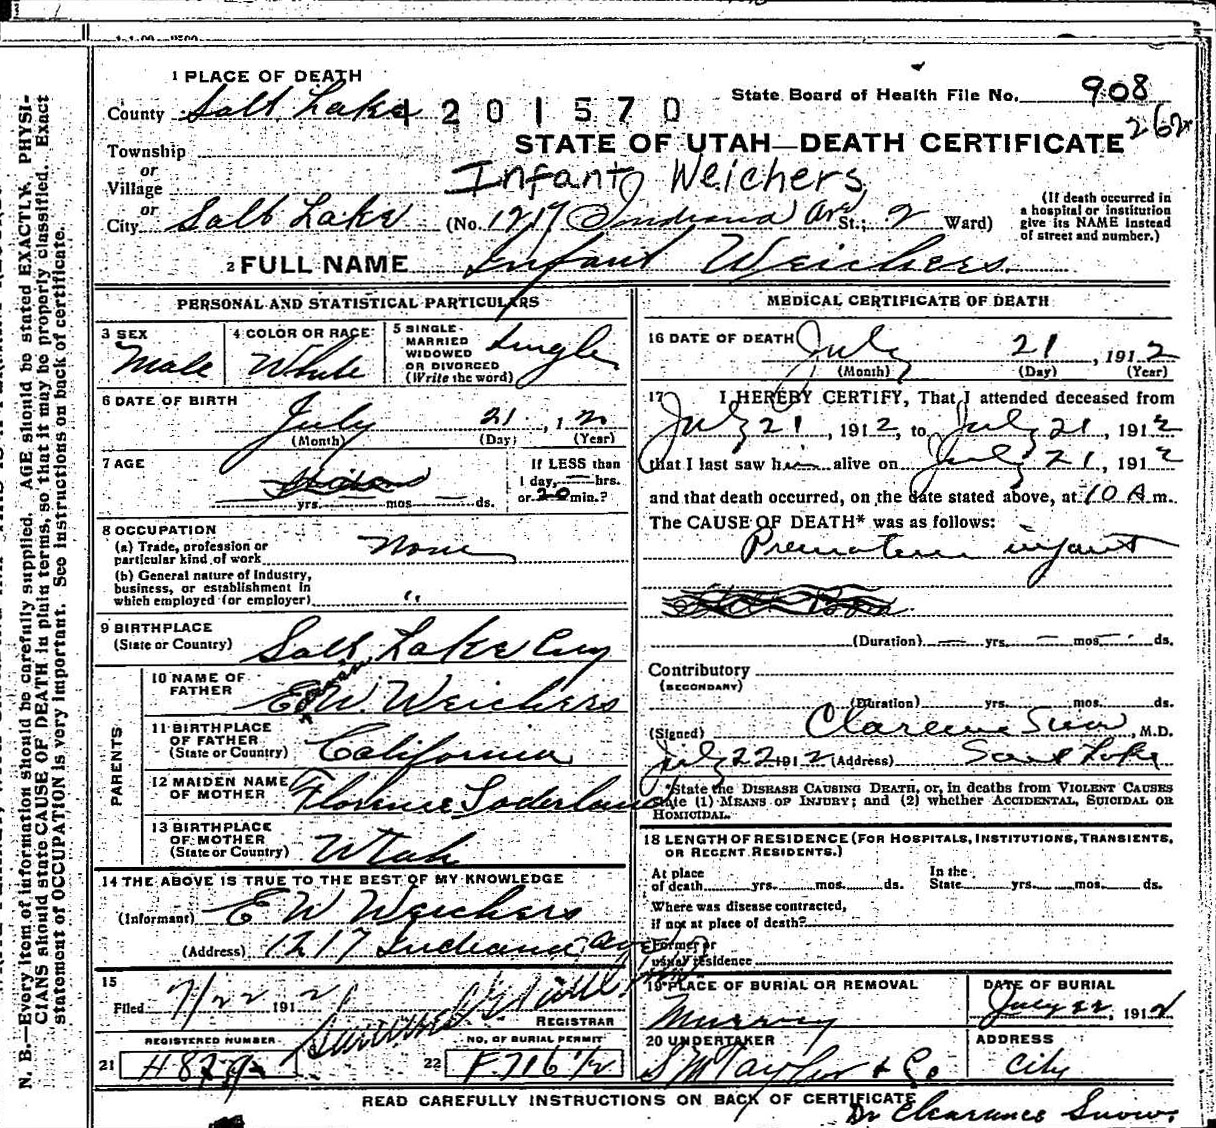 1 PLACE OF DEATH
County Salt Lake
1201570
State Board of Health File No. 908
262x
STATE OF UTAH—DEATH CERTIFICATE
Township
or
Village
Infant Weichers
or
City Salt Lake (No. 1217 Indiana Ave St.; 2 Ward)
(If death occurred in a hospital or institution give its NAME instead of street and number.)
2 FULL NAME Infant Weichers
PERSONAL AND STATISTICAL PARTICULARS
3 SEX Male
4 COLOR OR RACE White
5 SINGLE MARRIED WIDOWED OR DIVORCED (Write the word) Single
6 DATE OF BIRTH July 21, 1912
(Month) (Day) (Year)
7 AGE
yrs. — mos — ds.
If LESS than 1 day, — hrs. or 20 min.?
8 OCCUPATION
(a) Trade, profession or particular kind of work None
(b) General nature of Industry, business, or establishment in which employed (or employer) "
9 BIRTHPLACE (State or Country) Salt Lake City
PARENTS
10 NAME OF FATHER E W. Weichers
11 BIRTHPLACE OF FATHER (State or Country) California
12 MAIDEN NAME OF MOTHER Florence Soderland
13 BIRTHPLACE OF MOTHER (State or Country) Utah
14 THE ABOVE IS TRUE TO THE BEST OF MY KNOWLEDGE
(Informant) E W Weichers
(Address) 1217 Indiana Ave
15
Filed 7/22 1912
REGISTRAR
REGISTERED NUMBER
21
NO. OF BURIAL PERMIT
22 F.716 1/2
MEDICAL CERTIFICATE OF DEATH
16 DATE OF DEATH July 21, 1912
(Month) (Day) (Year)
17 I HEREBY CERTIFY, That I attended deceased from
July 21, 1912, to July 21, 1912
that I last saw him alive on July 21, 1912
and that death occurred, on the date stated above, at 10 A m.
The CAUSE OF DEATH* was as follows:
Premature infant
(Duration) — yrs. — mos — ds.
Contributory
(SECONDARY)
(Duration) yrs. mos. ds.
(Signed) Clarence Snow, M.D.
July 22 1912 (Address) Salt Lake
*State the DISEASE CAUSING DEATH, or, in deaths from VIOLENT CAUSES
state (1) MEANS OF INJURY; and (2) whether ACCIDENTAL, SUICIDAL OR
HOMICIDAL.
18 LENGTH OF RESIDENCE (FOR HOSPITALS, INSTITUTIONS, TRANSIENTS,
OR RECENT RESIDENTS.)
At place of death yrs. mos. ds. In the State yrs. mos. ds.
Where was disease contracted,
if not at place of death?
Former or
usual residence
19 PLACE OF BURIAL OR REMOVAL Murray
DATE OF BURIAL July 22, 1912
20 UNDERTAKER S M Taylor & Co
ADDRESS City
READ CAREFULLY INSTRUCTIONS ON BACK OF CERTIFICATE
Dr Clearance Snow.
N. B.—Every item of information should be carefully supplied. AGE should be stated EXACTLY. PHYSI-
CIANS should state CAUSE OF DEATH in plain terms, so that it may be properly classified. Exact
statement of OCCUPATION is very important. See instructions on back of certificate.